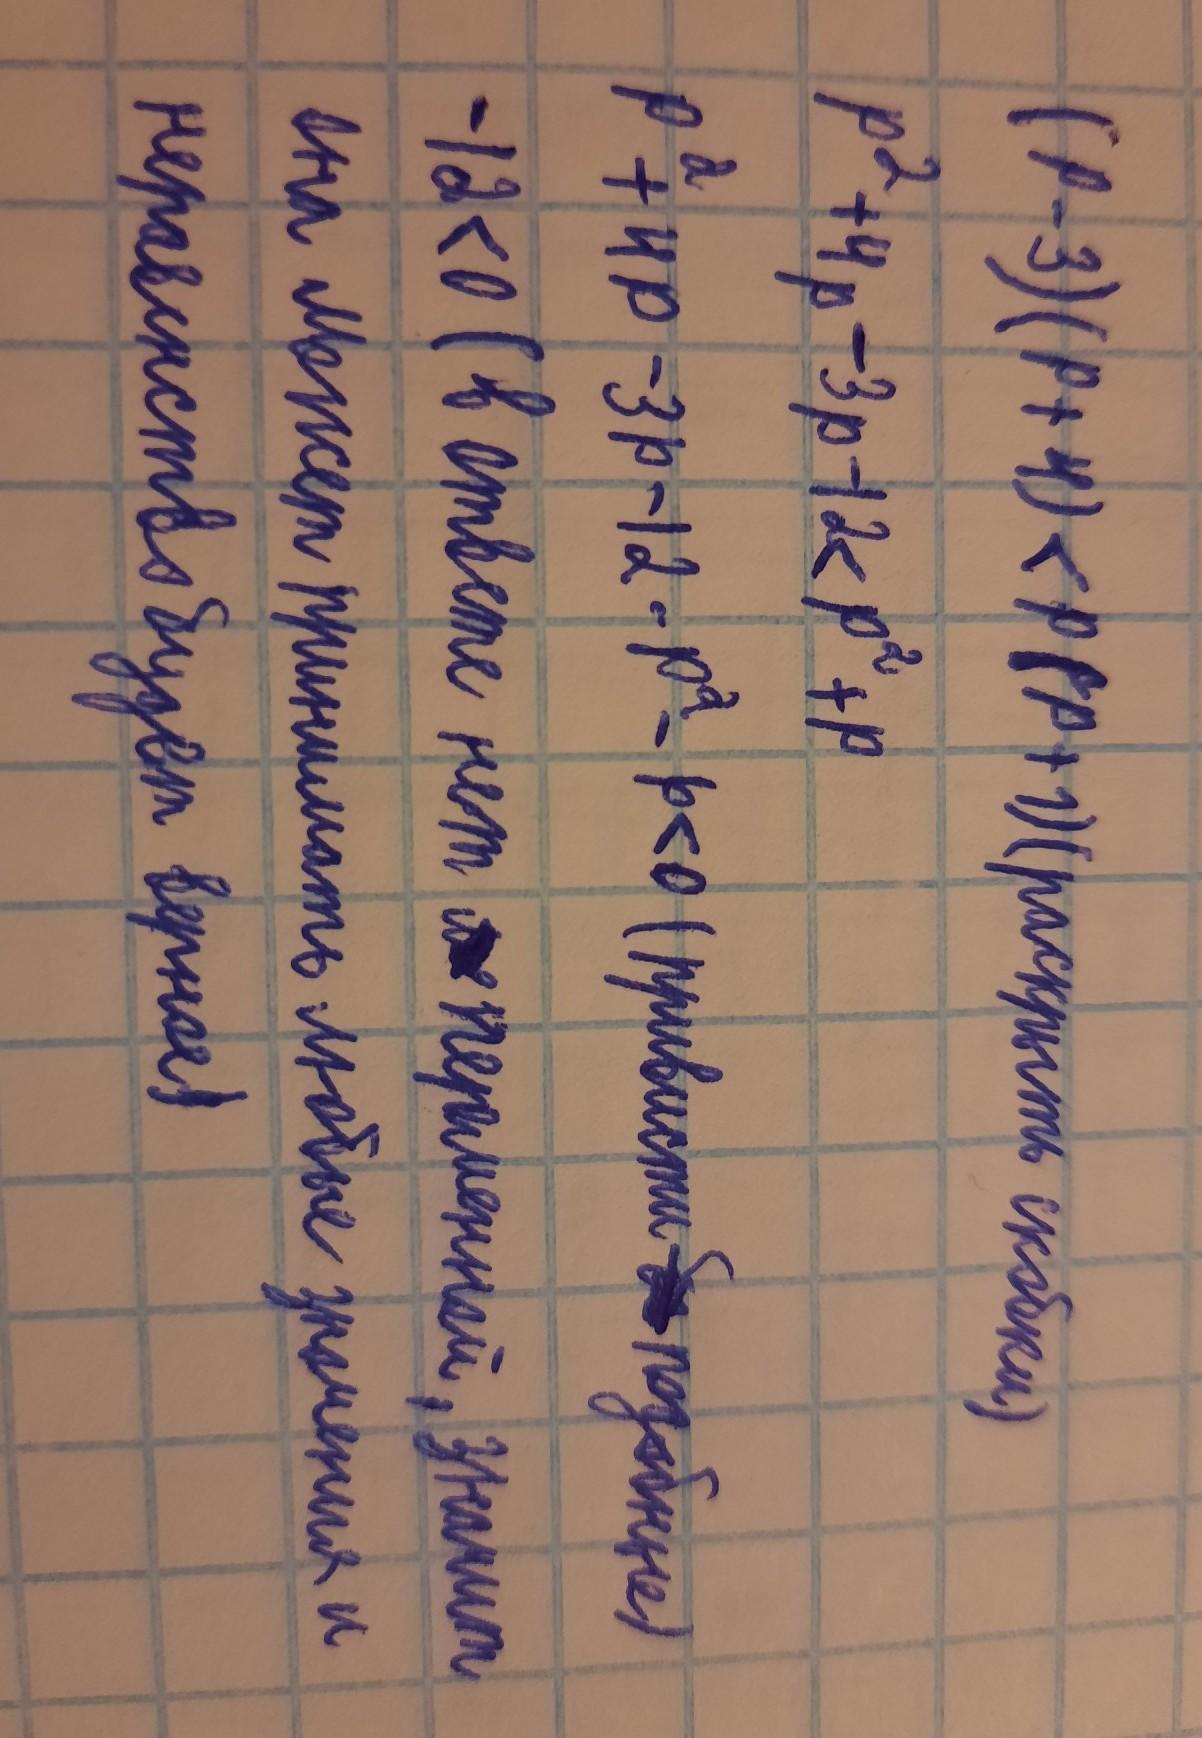 (p-3)(p+4)<p(p+1)(раскрыть скобки)
p²+4p-3p-12<p²+p
p²+4p-3p-12-p²-p<0 (привисти подобные)
-12<0 (в ответе нет переменной, значит
она может принимать любые значения и
неравенство будет верное)